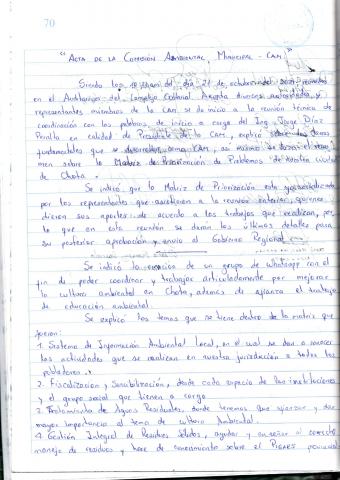 70
"ACTA DE LA COMISIÓN AMBIENTAL MUNICIPAL - CAM"
Siendo las del día 21 de octubre del reunidos
en el Auditorio del Complejo Cultural Akunta diversas autoridades y
representantes miembros de la CAM se da inicio a la reunión técnica de
coordinación con las palabras de inicio a cargo del Ing. Jorge Díaz
Peralta en calidad de Presidente de la CAM, explicó sobre los temas
fundamentales que se desarrollan como CAM, así mismo se
men sobre la Matriz de Priorización de Problemas de nuestra ciudad
de Chota.
Se indicó que la Matriz de Priorización esta
por los representantes que asistieron a la reunión anterior, quienes
dieron sus aportes de acuerdo a los trabajos que realizan, por
lo que en esta reunión se darán los últimos detalles para
su posterior aprobación y envío al Gobierno Regional
Se indicó la creación de un grupo de whatsapp con el
fin de poder coordinar y trabajar articuladamente por mejorar
la cultura ambiental en Chota, además de afianzar el trabajo
de educación ambiental.
Se explicó los temas que se tiene dentro de la matriz que
fueron:
1. Sistema de Información Ambiental Local, en el cual se dan a conocer
las actividades que se realizan en nuestra jurisdicción a todos los
pobladores.
2. Fiscalización y Sensibilización, desde cada espacio de las instituciones
y el grupo social que tienen a cargo
3. Tratamiento de Aguas Residuales, donde tenemos que afianzar y dar
mayor importancia al tema de cultura Ambiental.
4. Gestión Integral de Residuos Sólidos, ayudar y enseñar al correcto
manejo de residuos y hace de conocimiento sobre el PIGARS provincial